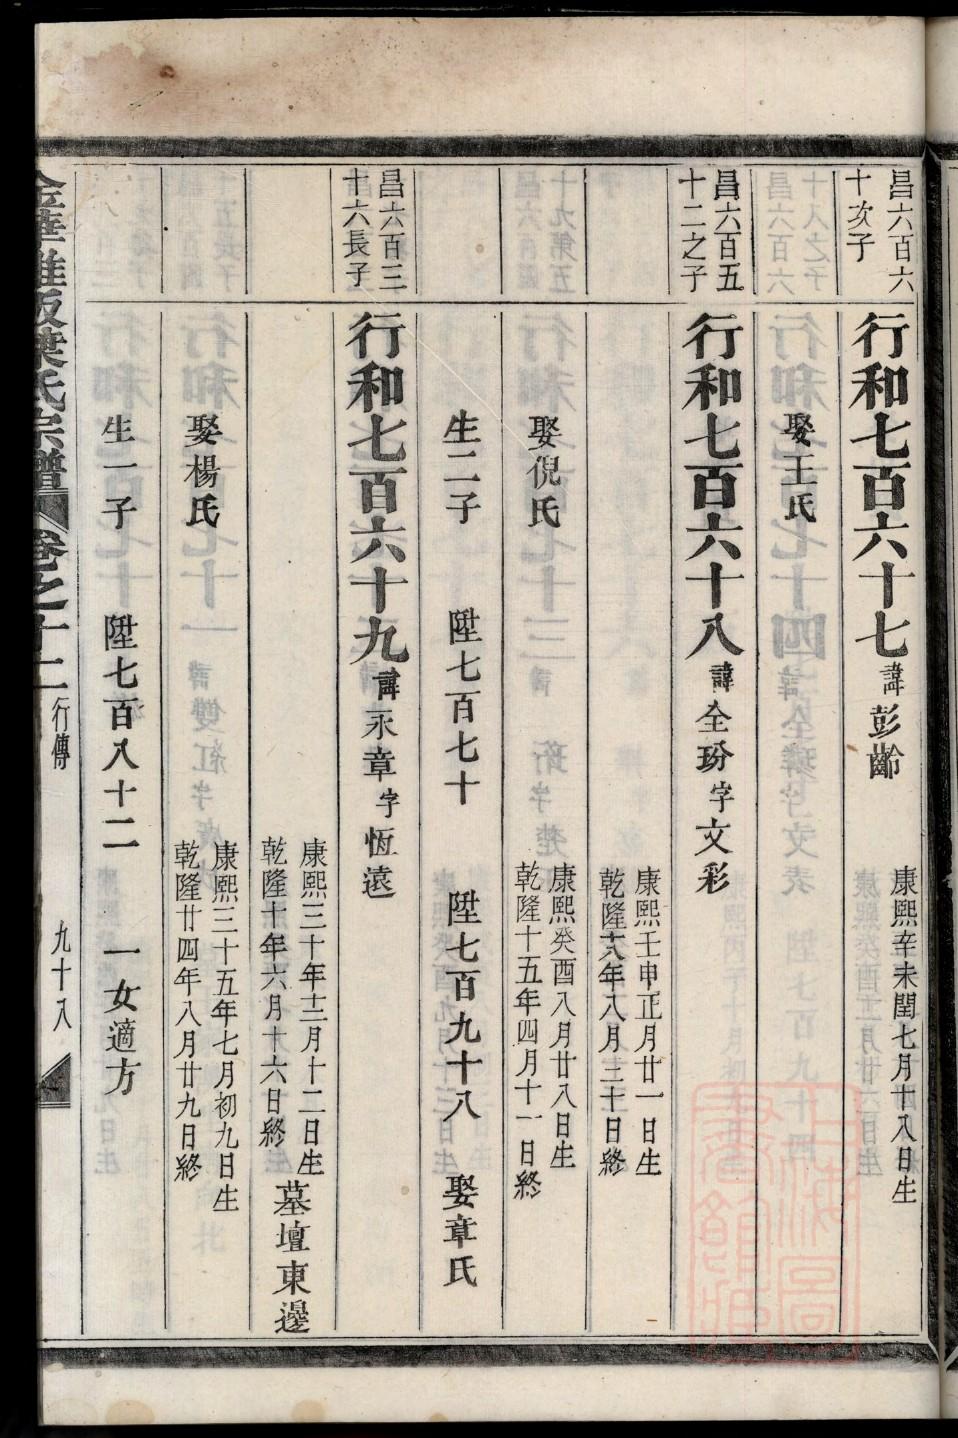 昌六百六
十次子
行和七百六十七諱彭齡
康熙辛未閏七月十八日生
娶王氏
昌六百五
十二之子
行和七百六十八諱全玢字文彩
康熙壬申正月廿一日生
乾隆六年八月三十日終
娶倪氏
康熙癸酉八月廿八日生
乾隆十五年四月十一日終
生二子 陞七百七十 陞七百九十八 娶章氏
昌六百三
十六長子
行和七百六十九諱永章字恆遠
康熙三十年十二月十二日生
乾隆十年六月十六日終
墓壇東邊
娶楊氏
康熙三十五年七月初九日生
乾隆廿四年八月廿九日終
生一子 陞七百八十二 一女適方
氏宗譜 卷之十二 行傳 九十八